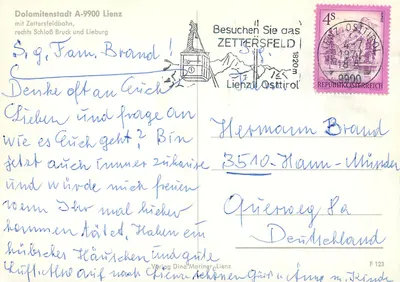 Dolomitenstadt A-9900 Lienz
mit Zettersfeldbahn,
rechts Schloß Bruck und Lieburg
Besuchen Sie das
ZETTERSFELD
1820m
Lienz Osttirol
4s
REPUBLIK ÖSTERREICH
9900
S. g. Fam. Brand!
Denke oft an Euch
Lieben und frage an
wie es Euch geht? Bin
jetzt auch immer zuhause
und würde mich freuen
wenn Ihr mal hieher
kommen tätet. Haben ein
hübsches Häuschen und gute
Luft. Also auf
Hermann Brand
3510-Hann-Münden
Querweg 8a
Deutschland
Verlag Dina Mariner, Lienz
F 123